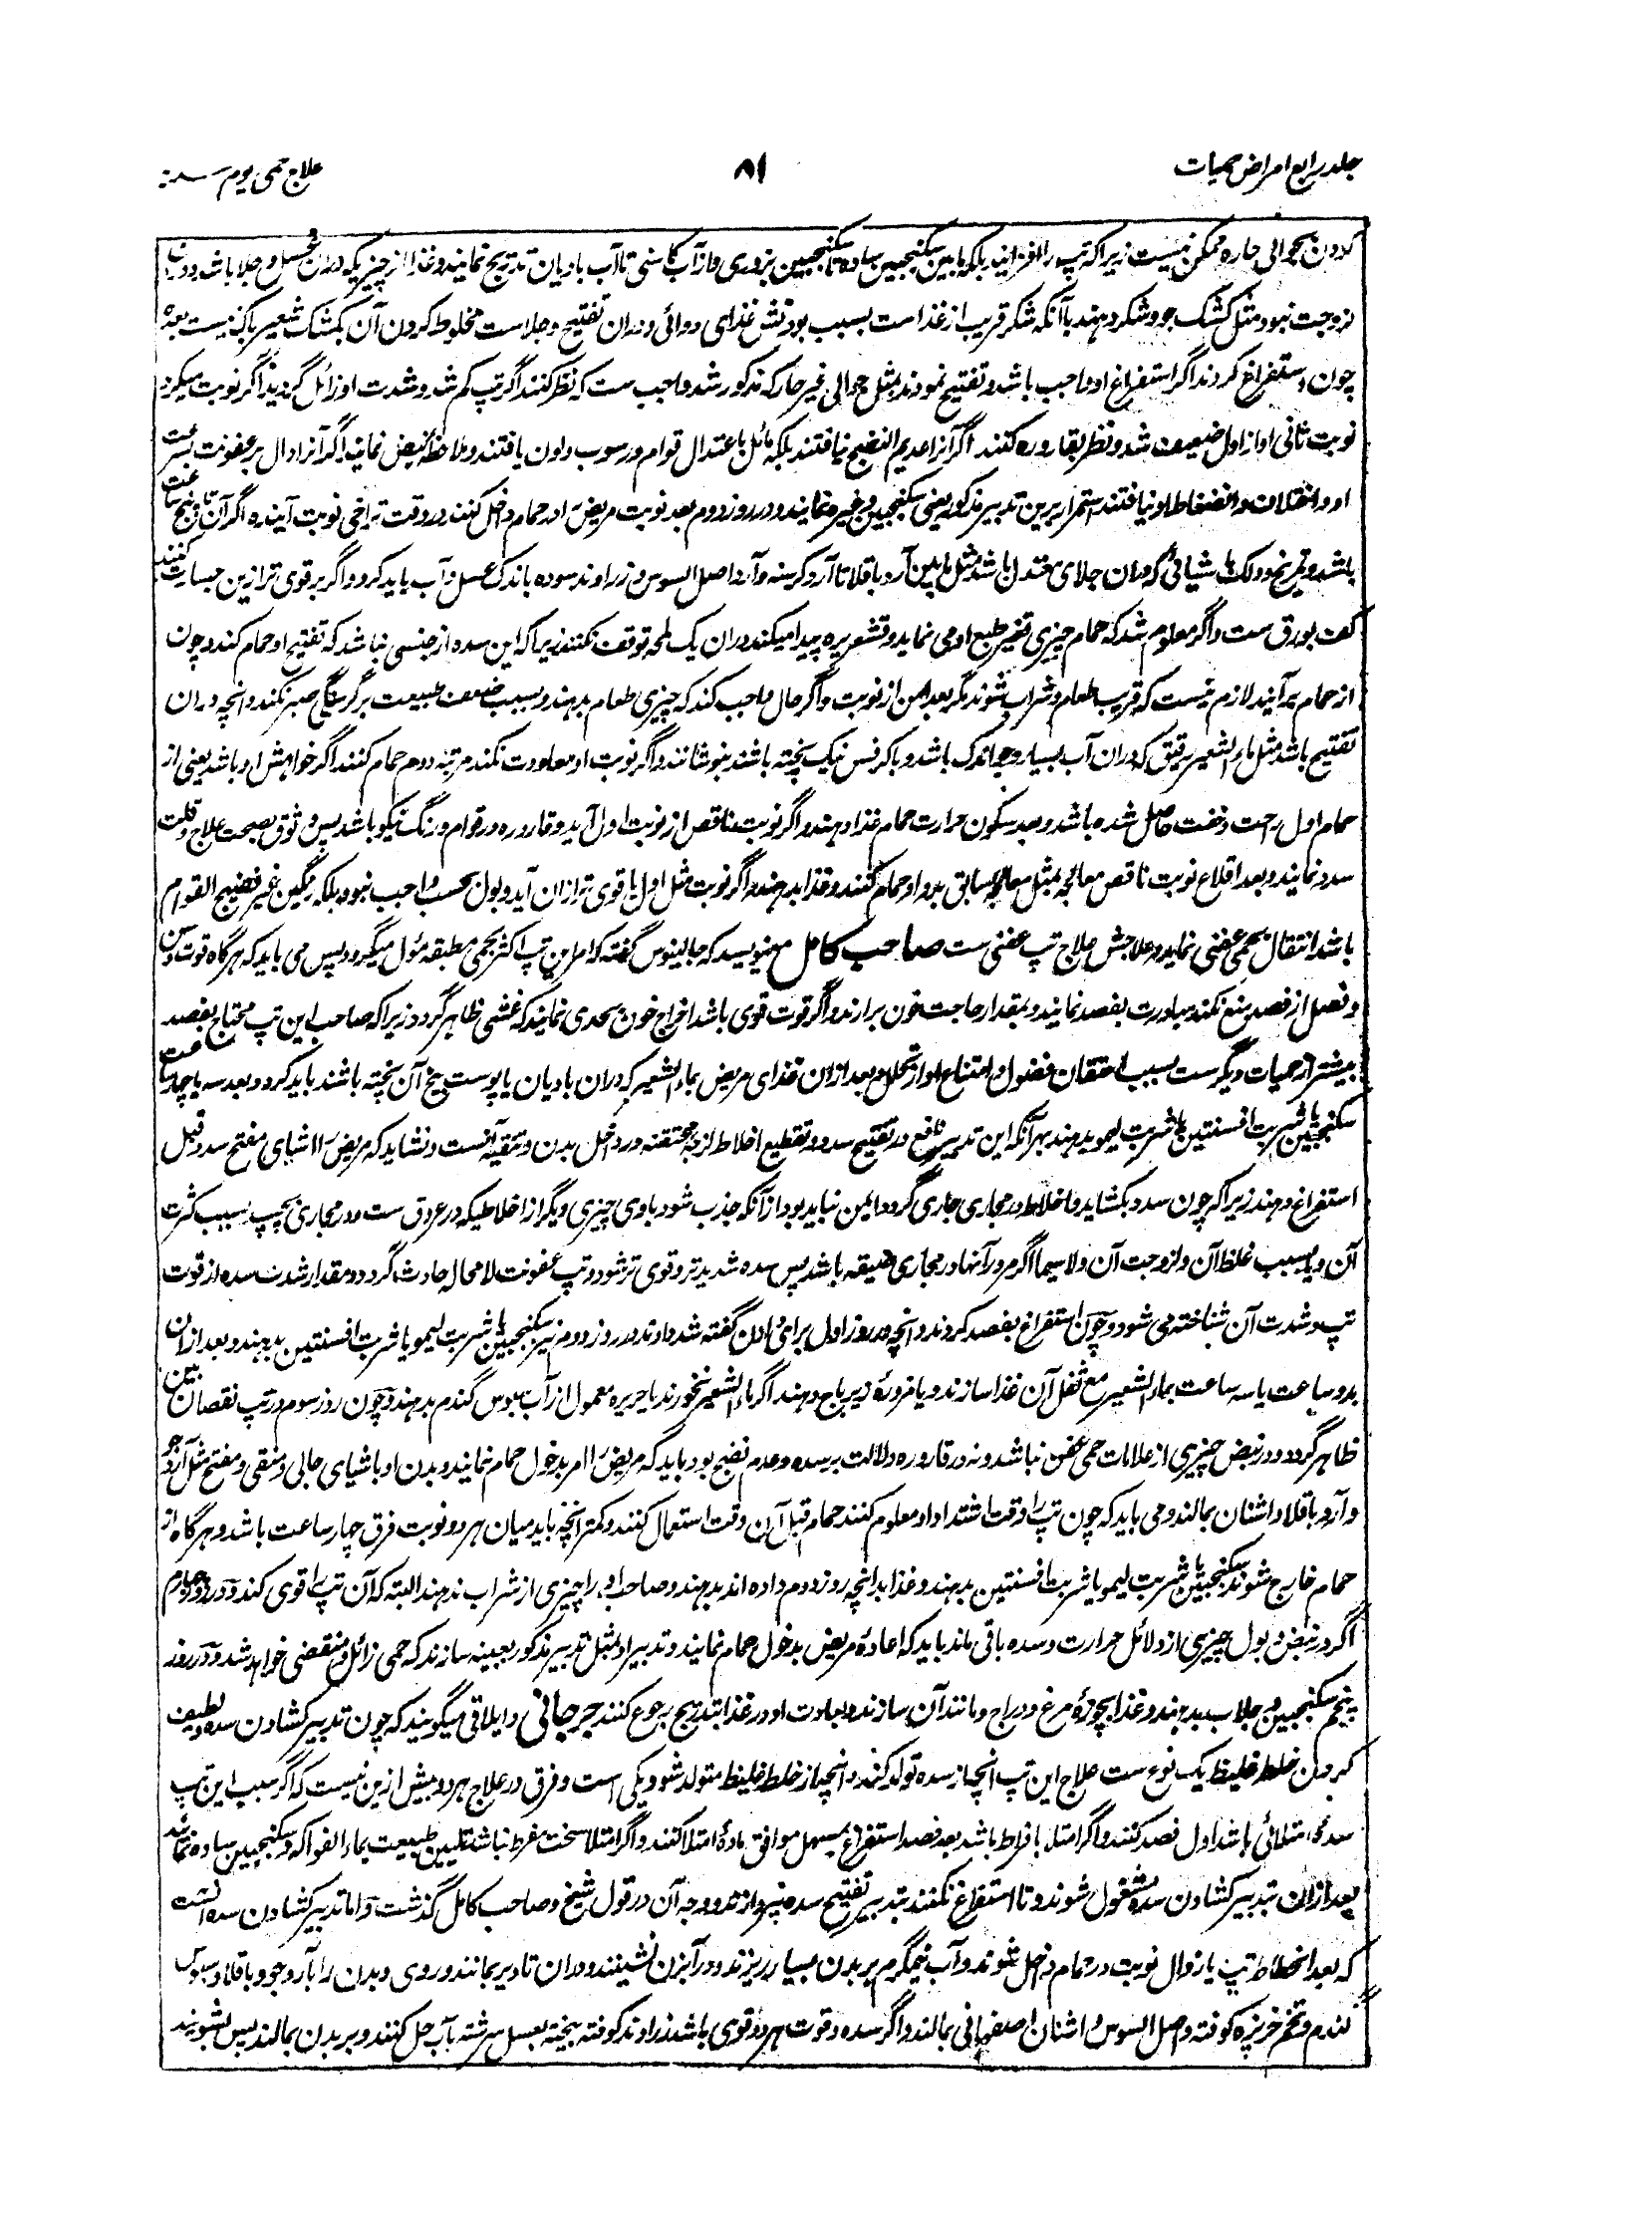 جلد رابع امراض حمیات
۸۱
علاج حمی یوم سده
کردن بجوالی حاره ممکن نیست زیراکه تپ را افزایند بلکه مابین سکنجبین ساده تا سکنجبین بزوری و از آب کاسنی تا آب بادیان تدریج نمایند و غذا از چیزیکه دران غسل و جلا باشد و دران
لزوجت نبود مثل کشک جو و شکر دهند باآنکه شکر قریب از غذاست بسبب بودنش غذای دوائی و دران تفتیح و جلاست مخلوط کردن آن بکشک شعیر باک نیست بعده
چون استفراغ کردند اگر استفراغ او واجب باشد و تفتیح نمودند بمثل جوالی غیر حار که مذکور شد واجب ست که نظر کنند اگر تپ کم شد و شدت او زائل گردید اگر نوبت میکرد
نوبت ثانی او از اول ضعیف شد و نظر بقاروره کنند اگر آنرا عدیم النضج نیافتند بلکه مائل باعتدال قوام و رسوب و لون یافتند و ملاحظه نبض نمایند اگر آنرا دال بر عفونت بسرعت
او و اختلاف و انضغاط او نیافتند استمرار برین تدبیر مذکور یعنی سکنجبین و غیره نمایند و در روز دوم بعد نوبت مریض را در حمام داخل کنند در وقت تراخی نوبت آینده اگر آن تا پنج ساعت
باشد و تمریخ و دلک باشیائی که دران جلای معتدل باشد مثل مابین آرد باقلا تا آرد کرسنه و آرد اصل السوس و زراوند سوده باندک عسل و آب باید کرد و اگر بر قوی تر ازین جسارت کنند
کف بورق ست و اگر معلوم شد که حمام چیزی تغیر طبع او می نماید و قشعریره پیدا میکند دران یک لمحه توقف نکنند زیراکه این سده از جنسی نباشد که تفتیح او حمام کند و چون
از حمام برآیند لازم نیست که قریب طعام و شراب شوند مگر بعد امن از نوبت و اگر حال واجب کند که چیزی طعام بدهند و بسبب ضعف طبیعت بر گرسنگی صبر نکند و انچه دران
تفتیح باشد مثل ماء الشعیر رقیق که دران آب بسیار و جو اندک باشد و با کرفس نیک پخته باشند بنوشانند و اگر نوبت او معاودت نکند مرتبه دوم حمام کنند اگر خواهش او باشد یعنی از
حمام اول راحت و خفت حاصل شده باشد و بعد سکون حرارت حمام غذا دهند و اگر نوبت ناقص از نوبت اول آید و قاروره در قوام و رنگ نیکو باشد پس وثوق بصحت علاج و قلت
سدد نمایند و بعد اقلاع نوبت ناقص معالجه بمثل معالجه سابق بدو او حمام کنند و غذا بدهند و اگر نوبت مثل اول یا قوی تر ازان آید و بول بحسب واجب نبود بلکه رنگین غیر نضیج القوام
باشد انتقال بحمی عفنی نماید و علاجش علاج تپ عفنی ست صاحب کامل مینویسد که جالینوس گفته که امر این تپ اکثر بحمی مطبقه مؤل میگردد پس می باید که هرگاه قوت و سن
و فصل از فصد منع نکند مبادرت بفصد نمایند و بقدر حاجت خون برارند و اگر قوت قوی باشد اخراج خون بحدی نمایند که غشی ظاهر گردد زیراکه صاحب این تپ محتاج بفصد
بیشتر از حمیات دیگر ست بسبب احتقان فضول و امتناع او از تحلل و بعد ازان غذای مریض بماء الشعیر که دران بادیان یا پوست بیخ آن پخته باشند باید کرد و بعد سه یا چهار ساعت
سکنجبین یا شربت افسنتین یا شربت لیمو بدهند بهرآنکه این تدبیر نافع در تفتیح سدد و تقطیع اخلاط لزجه محتقنه در داخل بدن و تنقیه آنست و نشاید که مریض را اشیای مفتح سدد قبل
استفراغ دهند زیراکه چون سدد بکشاید و اخلاط در مجاری جاری گردد ایمن نباید بود از آنکه جذب شود باوی چیزی دیگر از اخلاطیکه در عروق ست و در مجاری بچسپد بسبب کثرت
آن و یا بسبب غلظ آن و لزوجت آن و لاسیما اگر مرور آنها در مجاری ضیقه باشد پس سده شدیدتر و قوی تر شود و تپ عفونت لا محاله حادث گردد و مقدار شدت سده از قوت
تپ و شدت آن شناخته می شود و چون استفراغ بفصد کردند و انچه در روز اول برای دادن گفته شد دادند در روز دوم نیز سکنجبین یا شربت لیمو یا شربت افسنتین بدهند و بعد ازان
بدو ساعت یا سه ساعت بماء الشعیر مع ثفل آن غذا سازند و یا مزوره زیرباج دهند اگر ماء الشعیر نخورند یا حریره معمول از آب سبوس گندم بدهند و چون روز سوم در تپ نقصان بین
ظاهر گردد و در نبض چیزی از علامات حمی عفن نباشد و نه در قاروره دلالت بر سده و عدم نضج بود باید که مریض را امر بدخول حمام نمایند و بدن او باشیای جالی و منقی و مفتح مثل آرد جو
و آرد باقلا و اشنان بمالند و می باید که چون تپ را وقت اشتداد او معلوم کنند حمام قبل آن وقت استعمال کنند و کمتر انچه باید میان هر دو نوبت فرق چهار ساعت باشد و هرگاه از
حمام خارج شوند سکنجبین یا شربت لیمو یا شربت افسنتین بدهند و غذا بدانچه روز دوم داده اند بدهند و صاحب او را چیزی از شراب ندهند البته که آن تپ را قوی کند و در روز چهارم
اگر در نبض و بول چیزی از دلائل حرارت و سده باقی ماند باید که اعاده مریض بدخول حمام نمایند و تدبیر او بمثل تدبیر مذکور بعینه سازند که حمی زائل و منقضی خواهد شد و در روز
پنجم سکنجبین و جلاب بدهند و غذا بچوزه مرغ و دراج و مانند آن سازند و بعادت او در غذا بتدریج رجوع کنند جرجانی و ایلاقی میگویند که چون تدبیر کشادن سده و لطیف
کردن خلط غلیظ یک نوع ست علاج این تپ انچه از سده تولد کند و انچه از خلط غلیظ متولد شود یکی است و فرق در علاج هر دو بیش ازین نیست که اگر سبب این تپ
سده امتلائی باشد اول فصد کنند و اگر امتلا بافراط باشد بعد فصد استفراغ بمسهل موافق ماده امتلا کنند و اگر امتلا سخت مفرط نباشد تلیین طبیعت بماء الفواکه و سکنجبین ساده نمایند
بعد ازان تبدبیر کشادن سده مشغول شوند و تا استفراغ نکنند بتدبیر تفتیح سده نپردازند و وجه آن در قول شیخ و صاحب کامل گذشت و اما تدبیر کشادن سده آنست
که بعد انحطاط تپ یا زوال نوبت در حمام داخل شوند و آب نیمگرم بر بدن بسیار ریزند و در آبزن نشینند و دران تا دیر بمانند و روی و بدن را بآرد جو و باقلا و سبوس
گندم و تخم خربزه کوفته و اصل السوس و اشنان اصفهانی بمالند و اگر سده و قوت هر دو قوی باشد زراوند کوفته بیخته بعسل سرشته بآب حل کنند و بر بدن بمالند پس بشویند